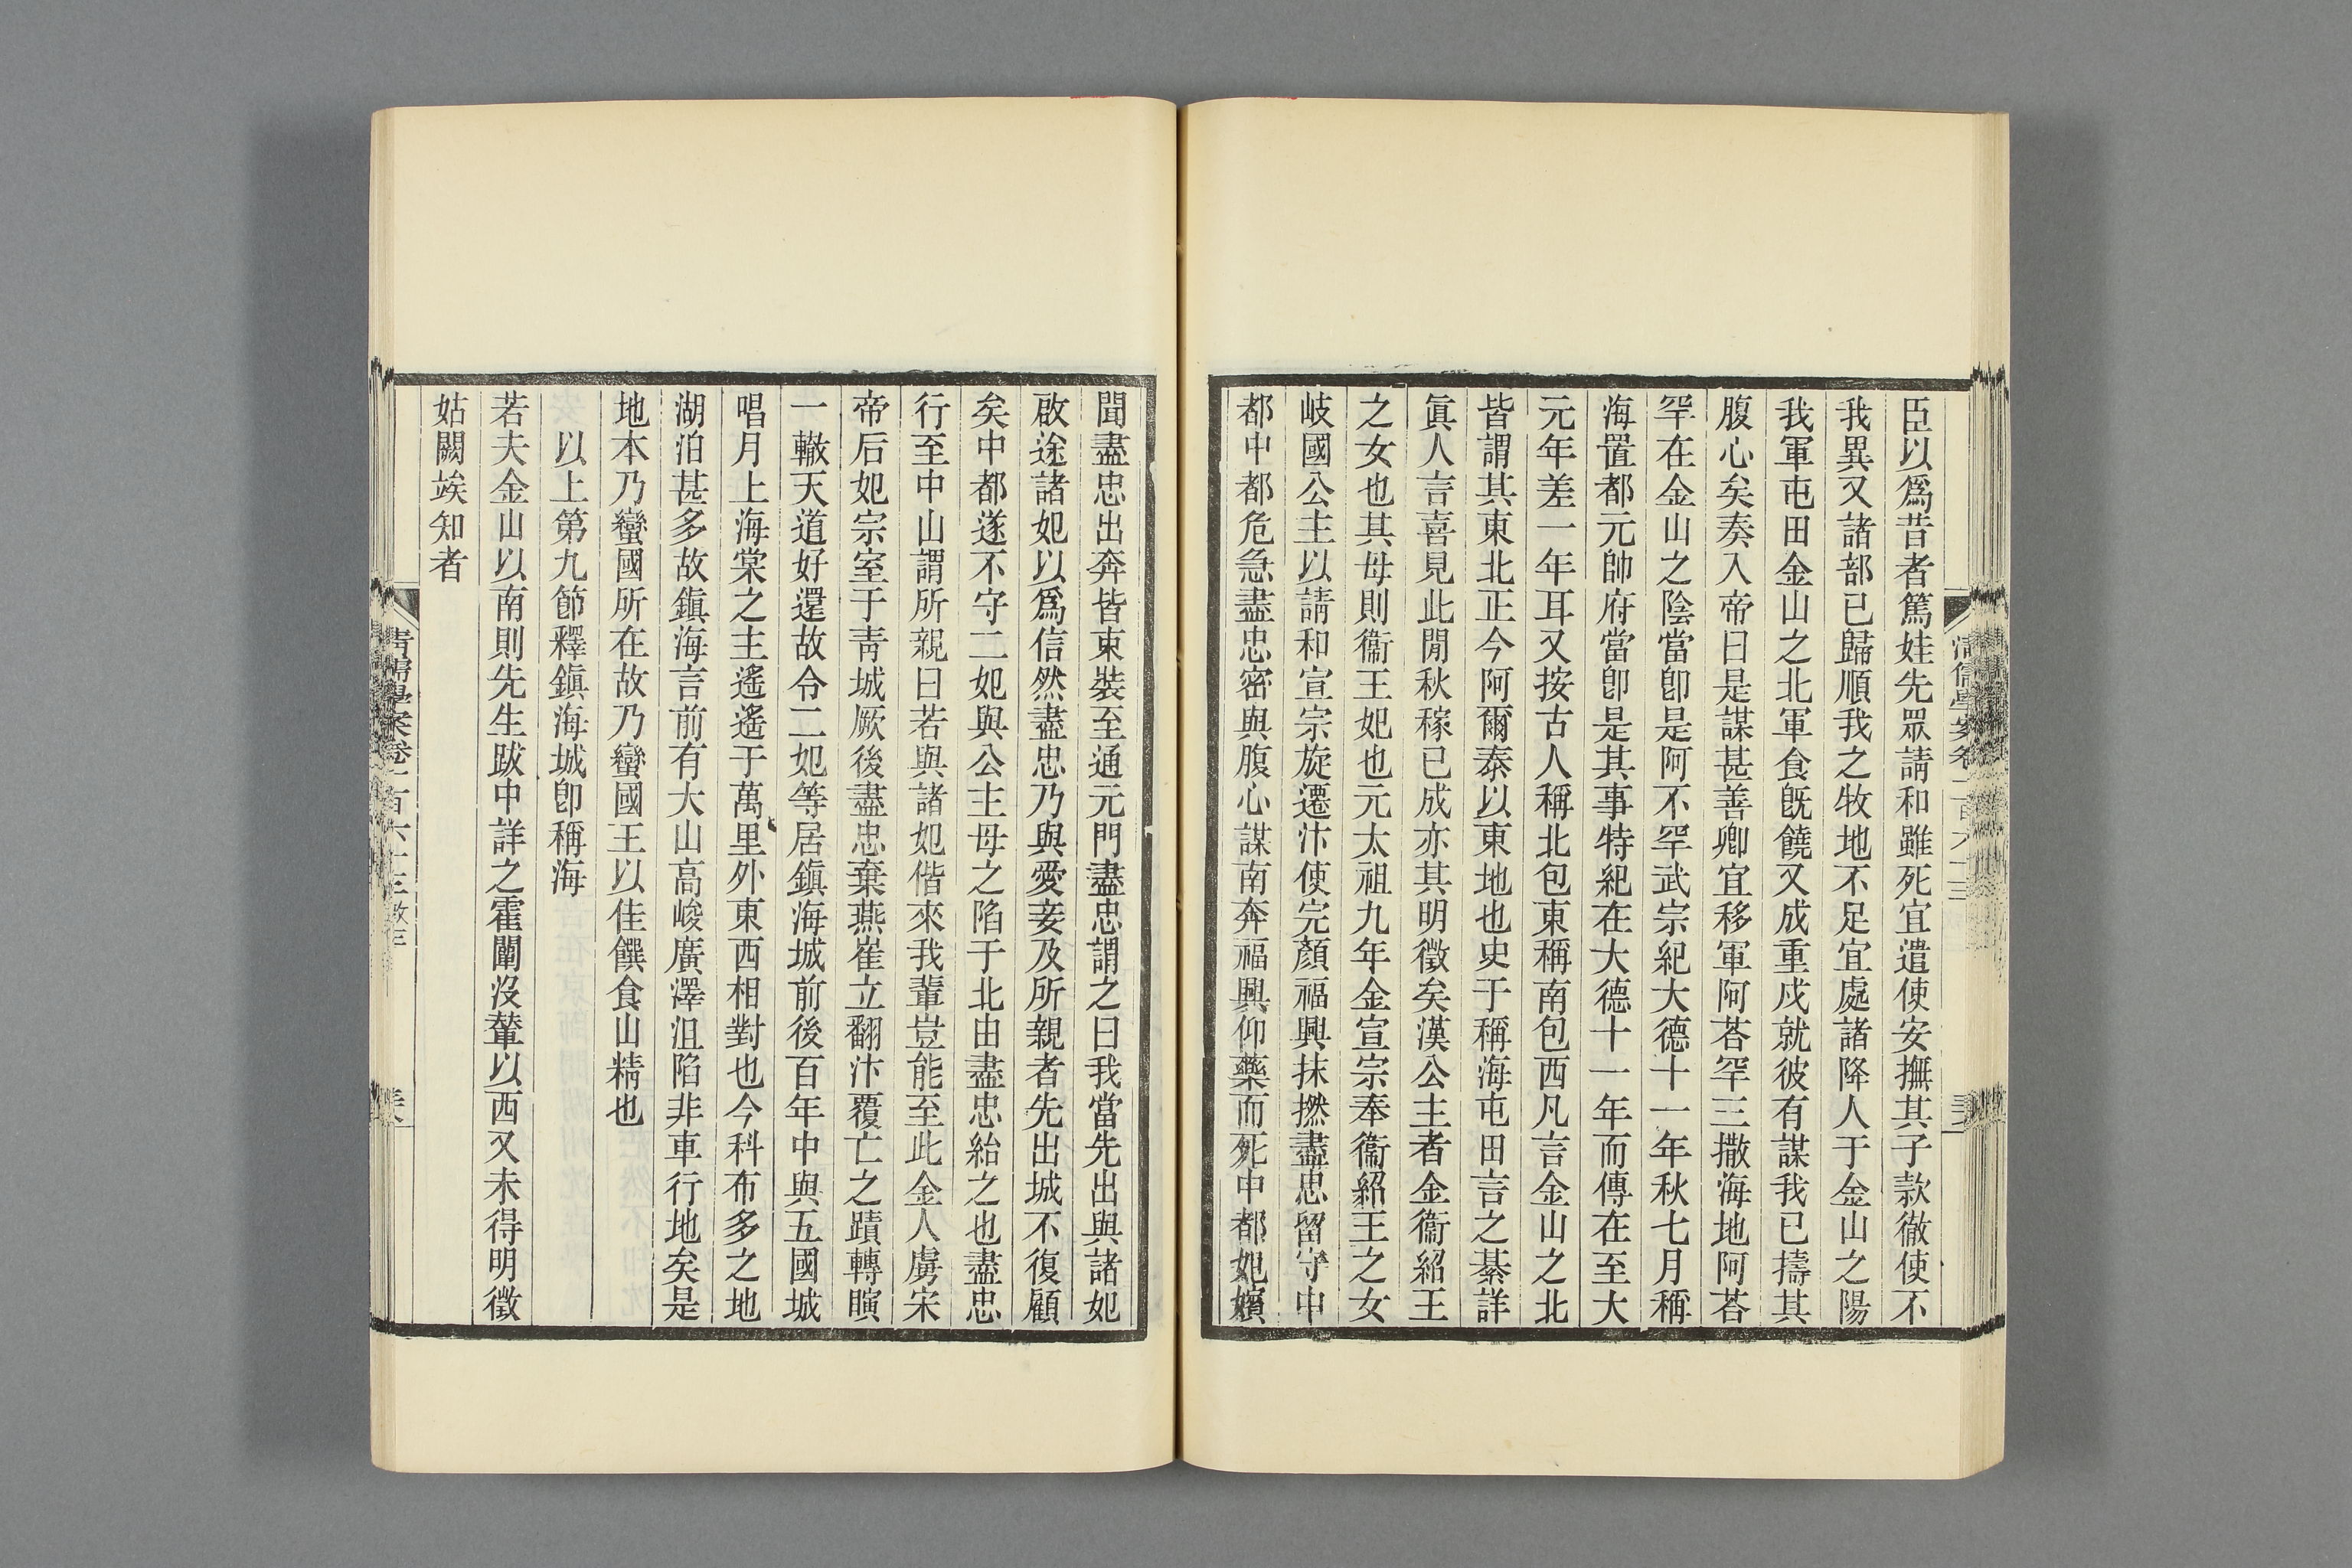 臣以爲昔者篤娃先眾請和雖死宜遣使安撫其子款徹使不
我異又諸部已歸順我之牧地不足宜處諸降人于金山之陽
我軍屯田金山之北軍食旣饒又成重戍就彼有謀我已擣其
腹心矣奏入帝曰是謀甚善卿宜移軍阿荅罕三撒海地阿荅
罕在金山之陰當卽是阿不罕武宗紀大德十一年秋七月稱
海置都元帥府當卽是其事特紀在大德十一年而傳在至大
元年差一年耳又按古人稱北包東稱南包西凡言金山之北
皆謂其東北正今阿爾泰以東地也史于稱海屯田言之綦詳
眞人言喜見此閒秋稼已成亦其明徵矣漢公主者金衞紹王
之女也其母則衞王妃也元太祖九年金宣宗奉衞紹王之女
岐國公主以請和宣宗旋遷汴使完顏福興抹撚盡忠留守中
都中都危急盡忠密與腹心謀南奔福興仰藥而死中都妃嬪
聞盡忠出奔皆束裝至通元門盡忠謂之曰我當先出與諸妃
啟途諸妃以爲信然盡忠乃與愛妾及所親者先出城不復顧
矣中都遂不守二妃與公主母之陷于北由盡忠紿之也盡忠
行至中山謂所親曰若與諸妃偕來我輩豈能至此金人虜宋
帝后妃宗室于靑城厥後盡忠棄燕崔立翻汴覆亡之蹟轉瞚
一轍天道好還故令二妃等居鎭海城前後百年中與五國城
唱月上海棠之主遙遙于萬里外東西相對也今科布多之地
湖泊甚多故鎭海言前有大山高峻廣澤沮陷非車行地矣是
地本乃蠻國所在故乃蠻國王以佳饌食山精也
以上第九節釋鎭海城卽稱海
若夫金山以南則先生跋中詳之霍闡沒輦以西又未得明徵
姑闕竢知者
清儒學案卷一百六十三